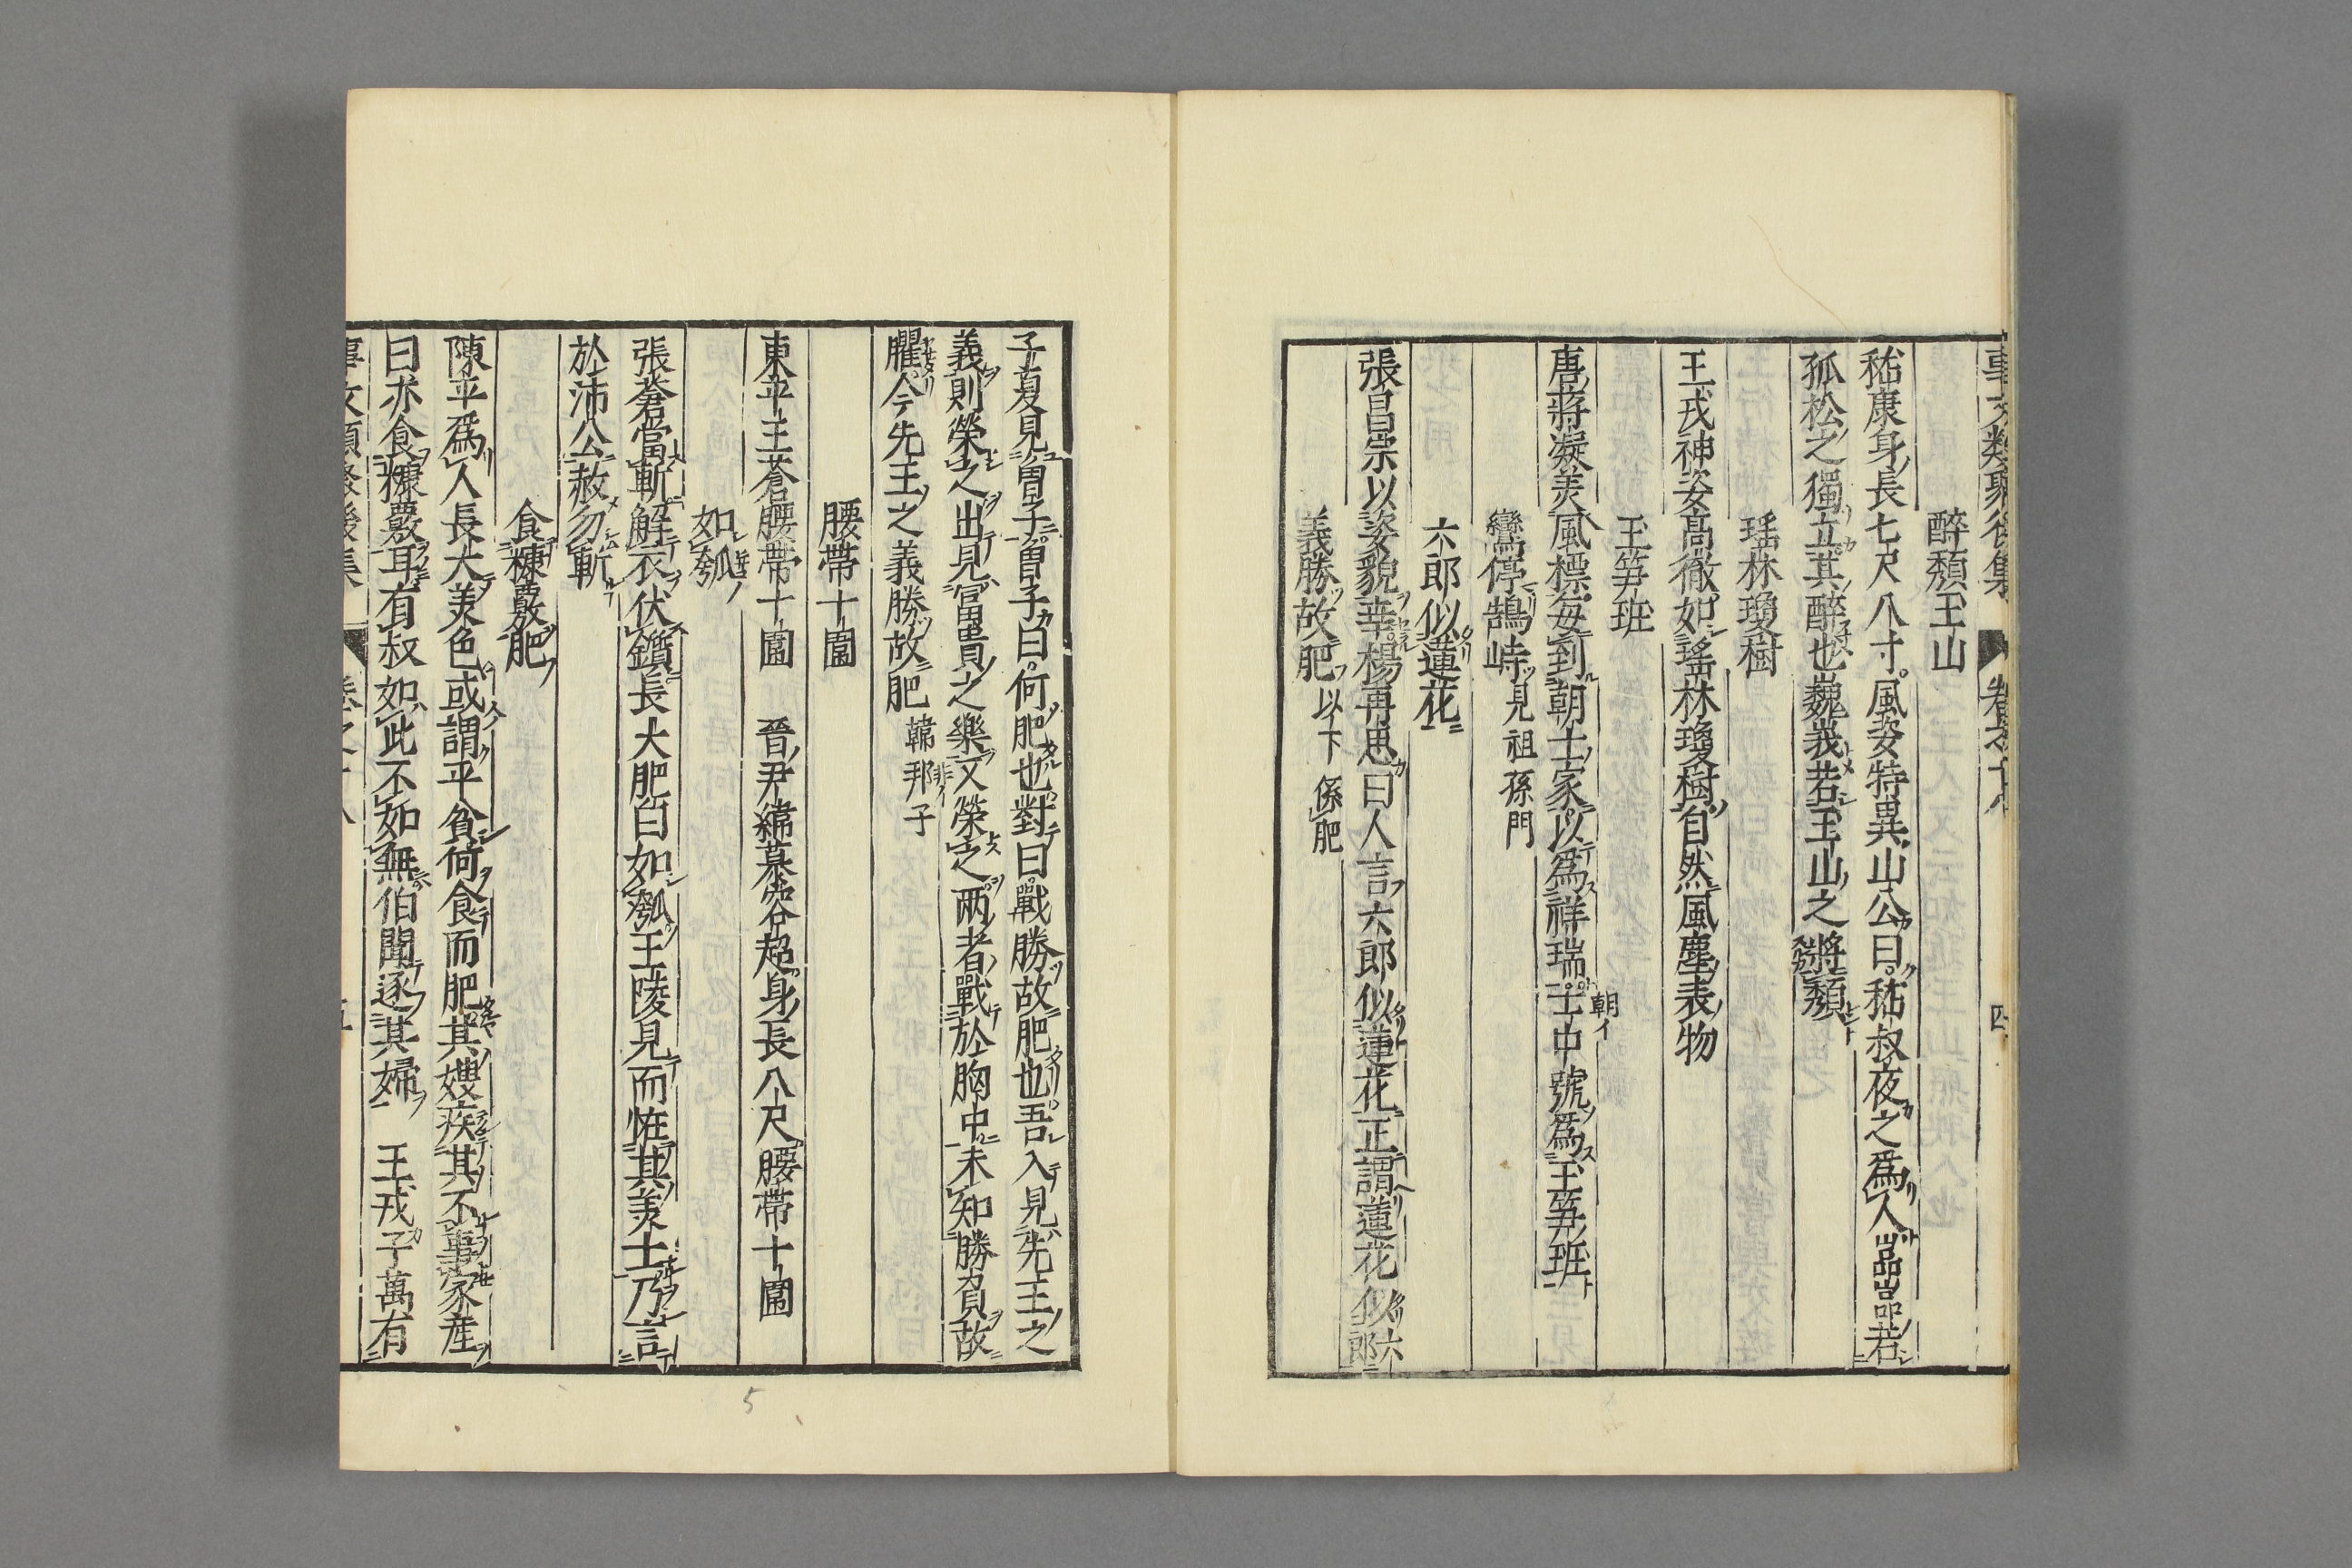 事文類聚後集 卷之十八 四
醉頽玉山
嵇康身長七尺八寸風姿特異山公曰嵇叔夜之爲人嵒嵒若
孤松之獨立其醉也巍峩若玉山之將頽
瑶林瓊樹
王戎神姿高徹如瑤林瓊樹自然風塵表物
玉笋班
唐蔣凝美風標每到朝士家以爲祥瑞士中號爲玉笋班
朝イ
鸞停鵠峙見祖孫門
六郎似蓮花
張昌宗以姿貌幸楊再思曰人言六郎似蓮花正謂蓮花似六郎
義勝故肥以下係肥
子夏見曾子曾子曰何肥也對曰戰勝故肥也吾入見先王之
義則榮之出見富貴之樂又榮之兩者戰於胸中未知勝負故
臞今先王之義勝故肥韓邦子
非イ
腰帶十圍
東平王蒼腰帶十圍 晉尹緯慕容超身長八尺腰帶十圍
如瓠
張蒼當斬解衣伏鑕長大肥白如瓠王陵見而怪其美士乃言
於沛公赦勿斬
食糠覈肥
陳平爲人長大美色或謂平貧何食而肥其嫂疾其不事家產
曰亦食糠覈耳有叔如此不如無伯聞逐其婦 王戎子萬有
事文類聚後集 卷之十八 五